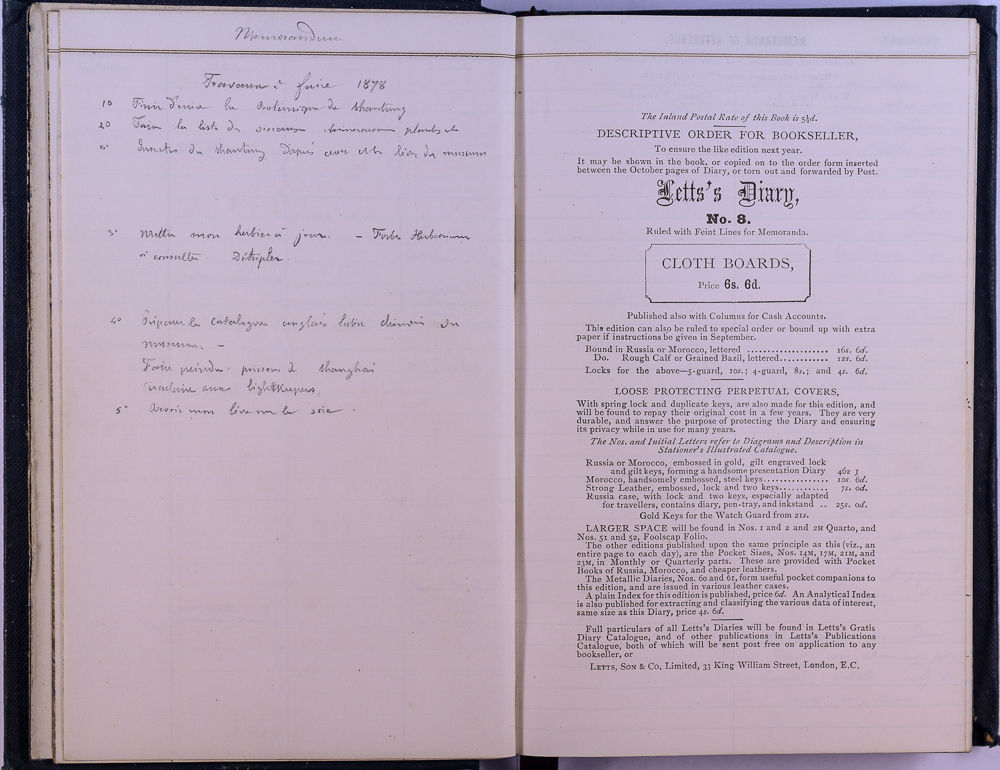 Memorandum
Travaux à faire 1878
1° Finir d'écrire la Botanique du Shantung
2° Faire la liste des oiseaux plantes et
insectes du Shantung d'après les du museum
3° Mettre mon herbier à jour. – Forbes Herbarium
à consulter
4° Préparer les catalogues anglais latin chinois du
museum. –
Faire peindre poissons de Shanghai
aux lightkeepers
5° mon livre sur la soie.
The Inland Postal Rate of this Book is 5½d.
DESCRIPTIVE ORDER FOR BOOKSELLER,
To ensure the like edition next year.
It may be shown in the book, or copied on to the order form inserted
between the October pages of Diary, or torn out and forwarded by Post.
Letts's Diary,
No. 8.
Ruled with Feint Lines for Memoranda.
CLOTH BOARDS,
Price 6s. 6d.
Published also with Columns for Cash Accounts.
This edition can also be ruled to special order or bound up with extra
paper if instructions be given in September.
Bound in Russia or Morocco, lettered .................. 16s. 6d.
Do. Rough Calf or Grained Bazil, lettered ............ 12s. 6d.
Locks for the above—5-guard, 10s.; 4-guard, 8s.; and 4s. 6d.
LOOSE PROTECTING PERPETUAL COVERS,
With spring lock and duplicate keys, are also made for this edition, and
will be found to repay their original cost in a few years. They are very
durable, and answer the purpose of protecting the Diary and ensuring
its privacy while in use for many years.
The Nos. and Initial Letters refer to Diagrams and Description in
Stationer's Illustrated Catalogue.
Russia or Morocco, embossed in gold, gilt engraved lock
and gilt keys, forming a handsome presentation Diary 462 J
Morocco, handsomely embossed, steel keys ............... 10s. 6d.
Strong Leather, embossed, lock and two keys ............ 7s. 0d.
Russia case, with lock and two keys, especially adapted
for travellers, contains diary, pen-tray, and inkstand .. 25s. 0d.
Gold Keys for the Watch Guard from 21s.
LARGER SPACE will be found in Nos. 1 and 2 and 2H Quarto, and
Nos. 51 and 52, Foolscap Folio.
The other editions published upon the same principle as this (viz., an
entire page to each day), are the Pocket Sizes, Nos. 14M, 17M, 21M, and
23M, in Monthly or Quarterly parts. These are provided with Pocket
Books of Russia, Morocco, and cheaper leathers.
The Metallic Diaries, Nos. 60 and 61, form useful pocket companions to
this edition, and are issued in various leather cases.
A plain Index for this edition is published, price 6d. An Analytical Index
is also published for extracting and classifying the various data of interest,
same size as this Diary, price 4s. 6d.
Full particulars of all Letts's Diaries will be found in Letts's Gratis
Diary Catalogue, and of other publications in Letts's Publications
Catalogue, both of which will be sent post free on application to any
bookseller, or
LETTS, SON & Co, Limited, 33 King William Street, London, E.C.